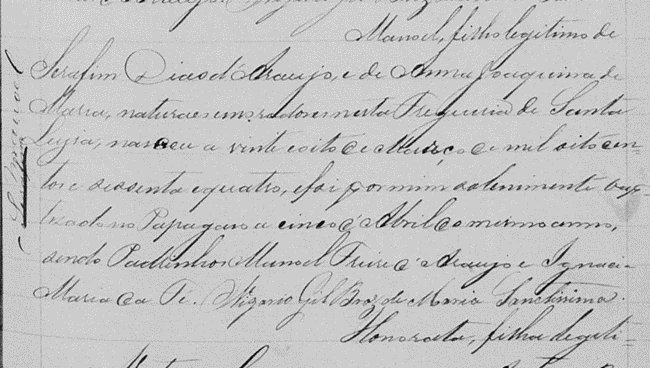 Manoel, filho legitimo de
Serafim Dias d'Araujo, e de Anna Joaquina de
Maria, naturaes e moradores nesta Freguesia de Santa
Luzia, nasceu a vinte e oito de Março de mil oitocen-
tos e sessenta e quatro, e foi por mim solenimente bap-
tizado no Papagaio a cinco d'Abril do mesmo anno,
sendo Padrinhos Manoel Freire d'Araujo e Ignacia
Maria da Fé. Vigario Gil Braz de Maria Santissima.
Honorata, filha legiti-
Manoel